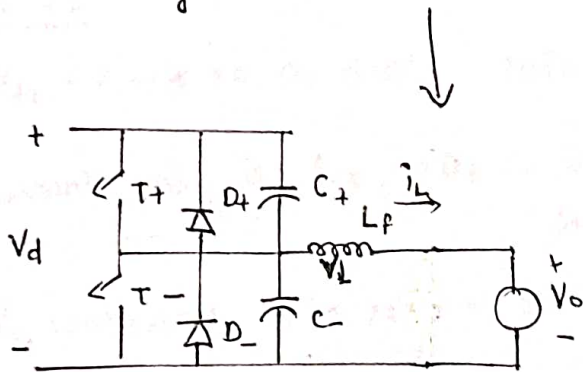 +
T+
D+
C+
iL
Lf
Vd
VL
+
Vo
-
T-
D_
C_
-